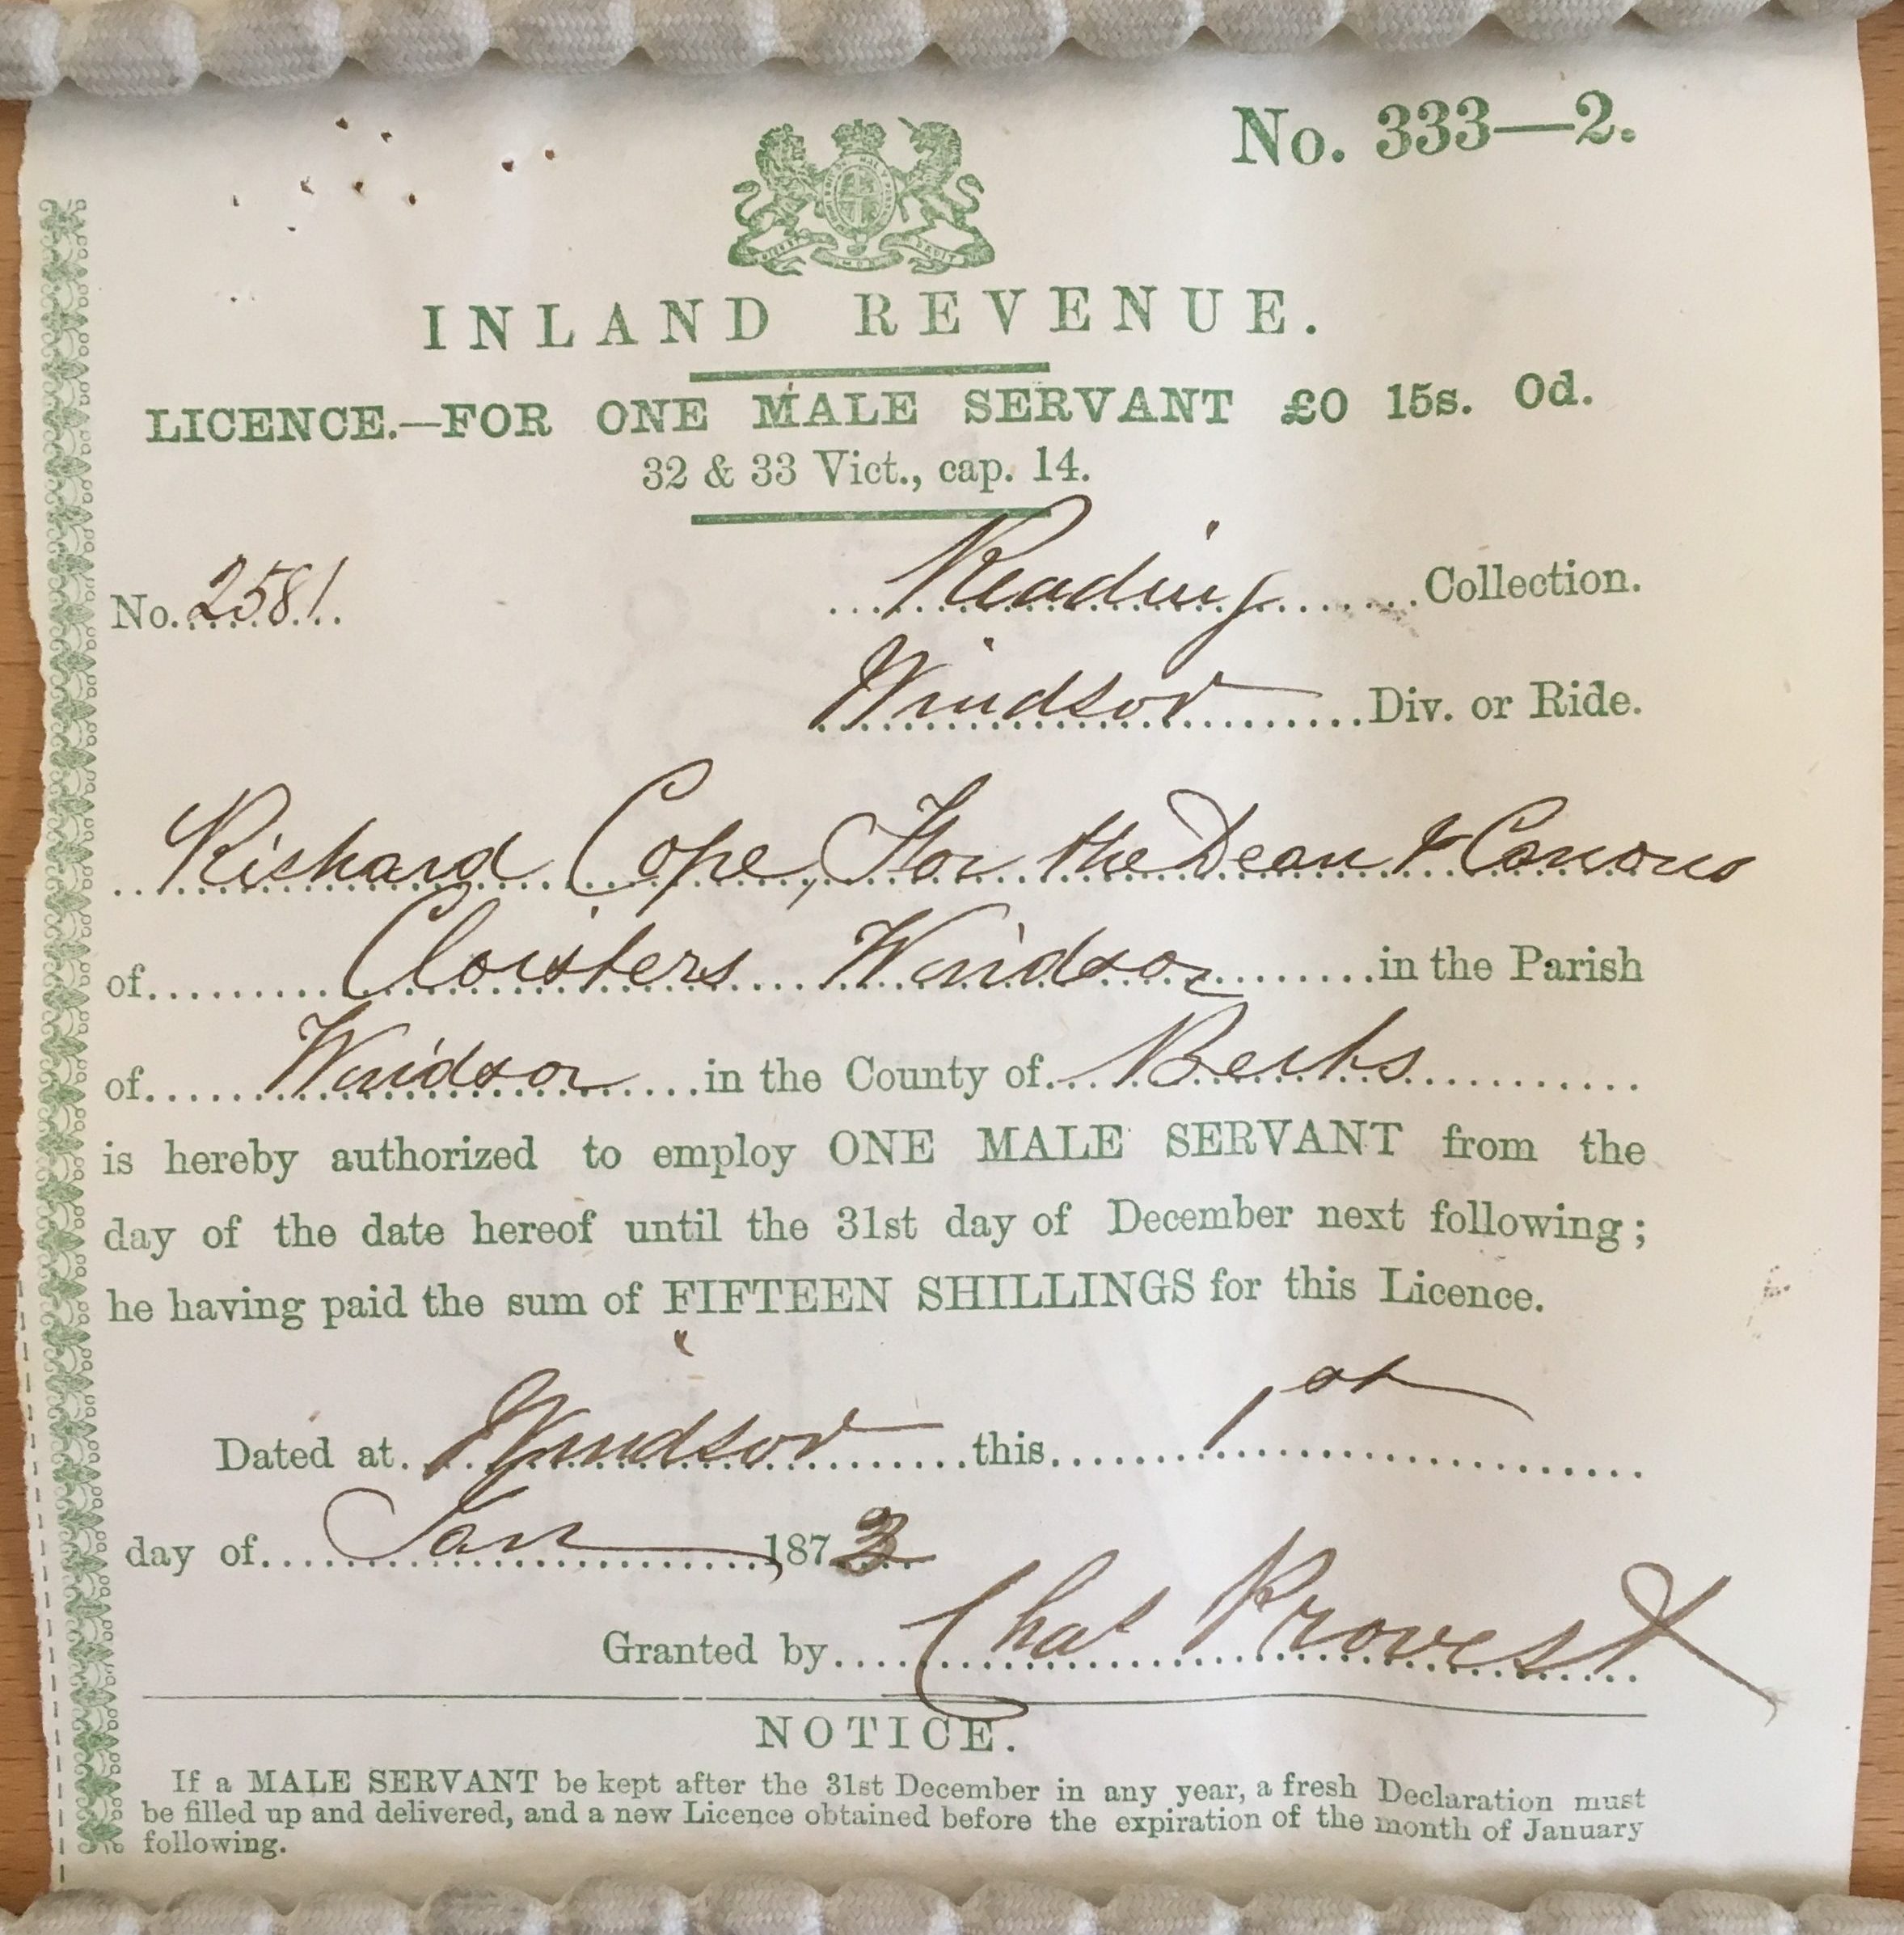 No. 333—2.
INLAND REVENUE.
LICENCE.—FOR ONE MALE SERVANT £0 15s. 0d.
32 & 33 Vict., cap. 14.
No. 2581. Reading Collection.
Windsor Div. or Ride.
Richard Cope, For the Dean & Canons
of Cloisters Windsor in the Parish
of Windsor in the County of Berks
is hereby authorized to employ ONE MALE SERVANT from the
day of the date hereof until the 31st day of December next following;
he having paid the sum of FIFTEEN SHILLINGS for this Licence.
Dated at Windsor this 1st
day of Jan 1873
Granted by Chas Provest
NOTICE.
If a MALE SERVANT be kept after the 31st December in any year, a fresh Declaration must
be filled up and delivered, and a new Licence obtained before the expiration of the month of January
following.